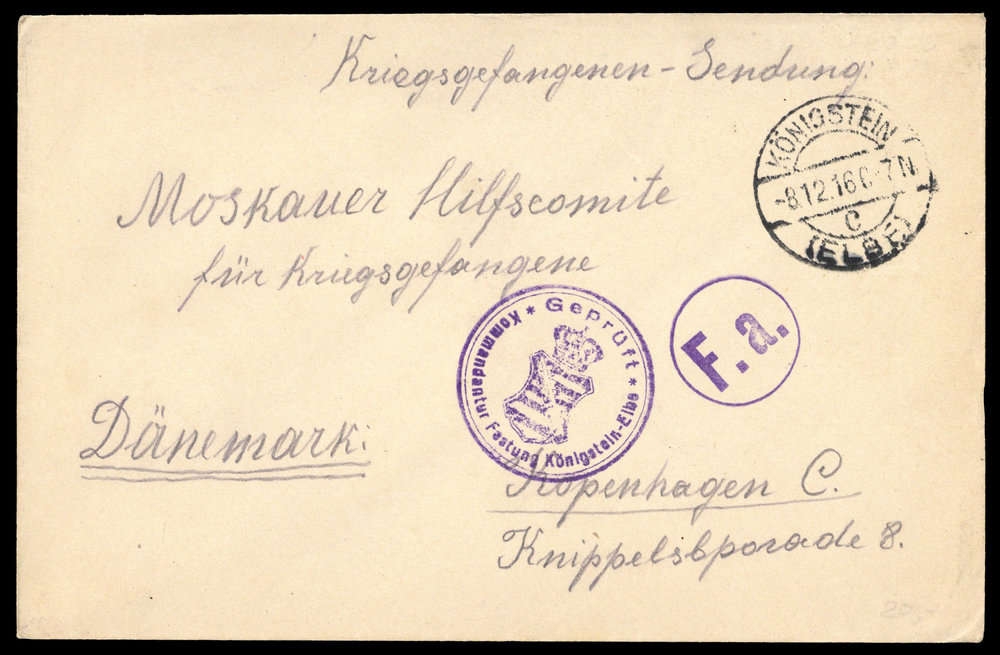 Kriegsgefangenen-Sendung:
KÖNIGSTEIN
-8.12.16 6-7 N
C
(ELBE)
Moskauer Hilfscomite
für Kriegsgefangene
* Geprüft *
Kommandantur Festung Königstein-Elbe
F. a.
Dänemark:
Kopenhagen C.
Knippelsbporade 8.